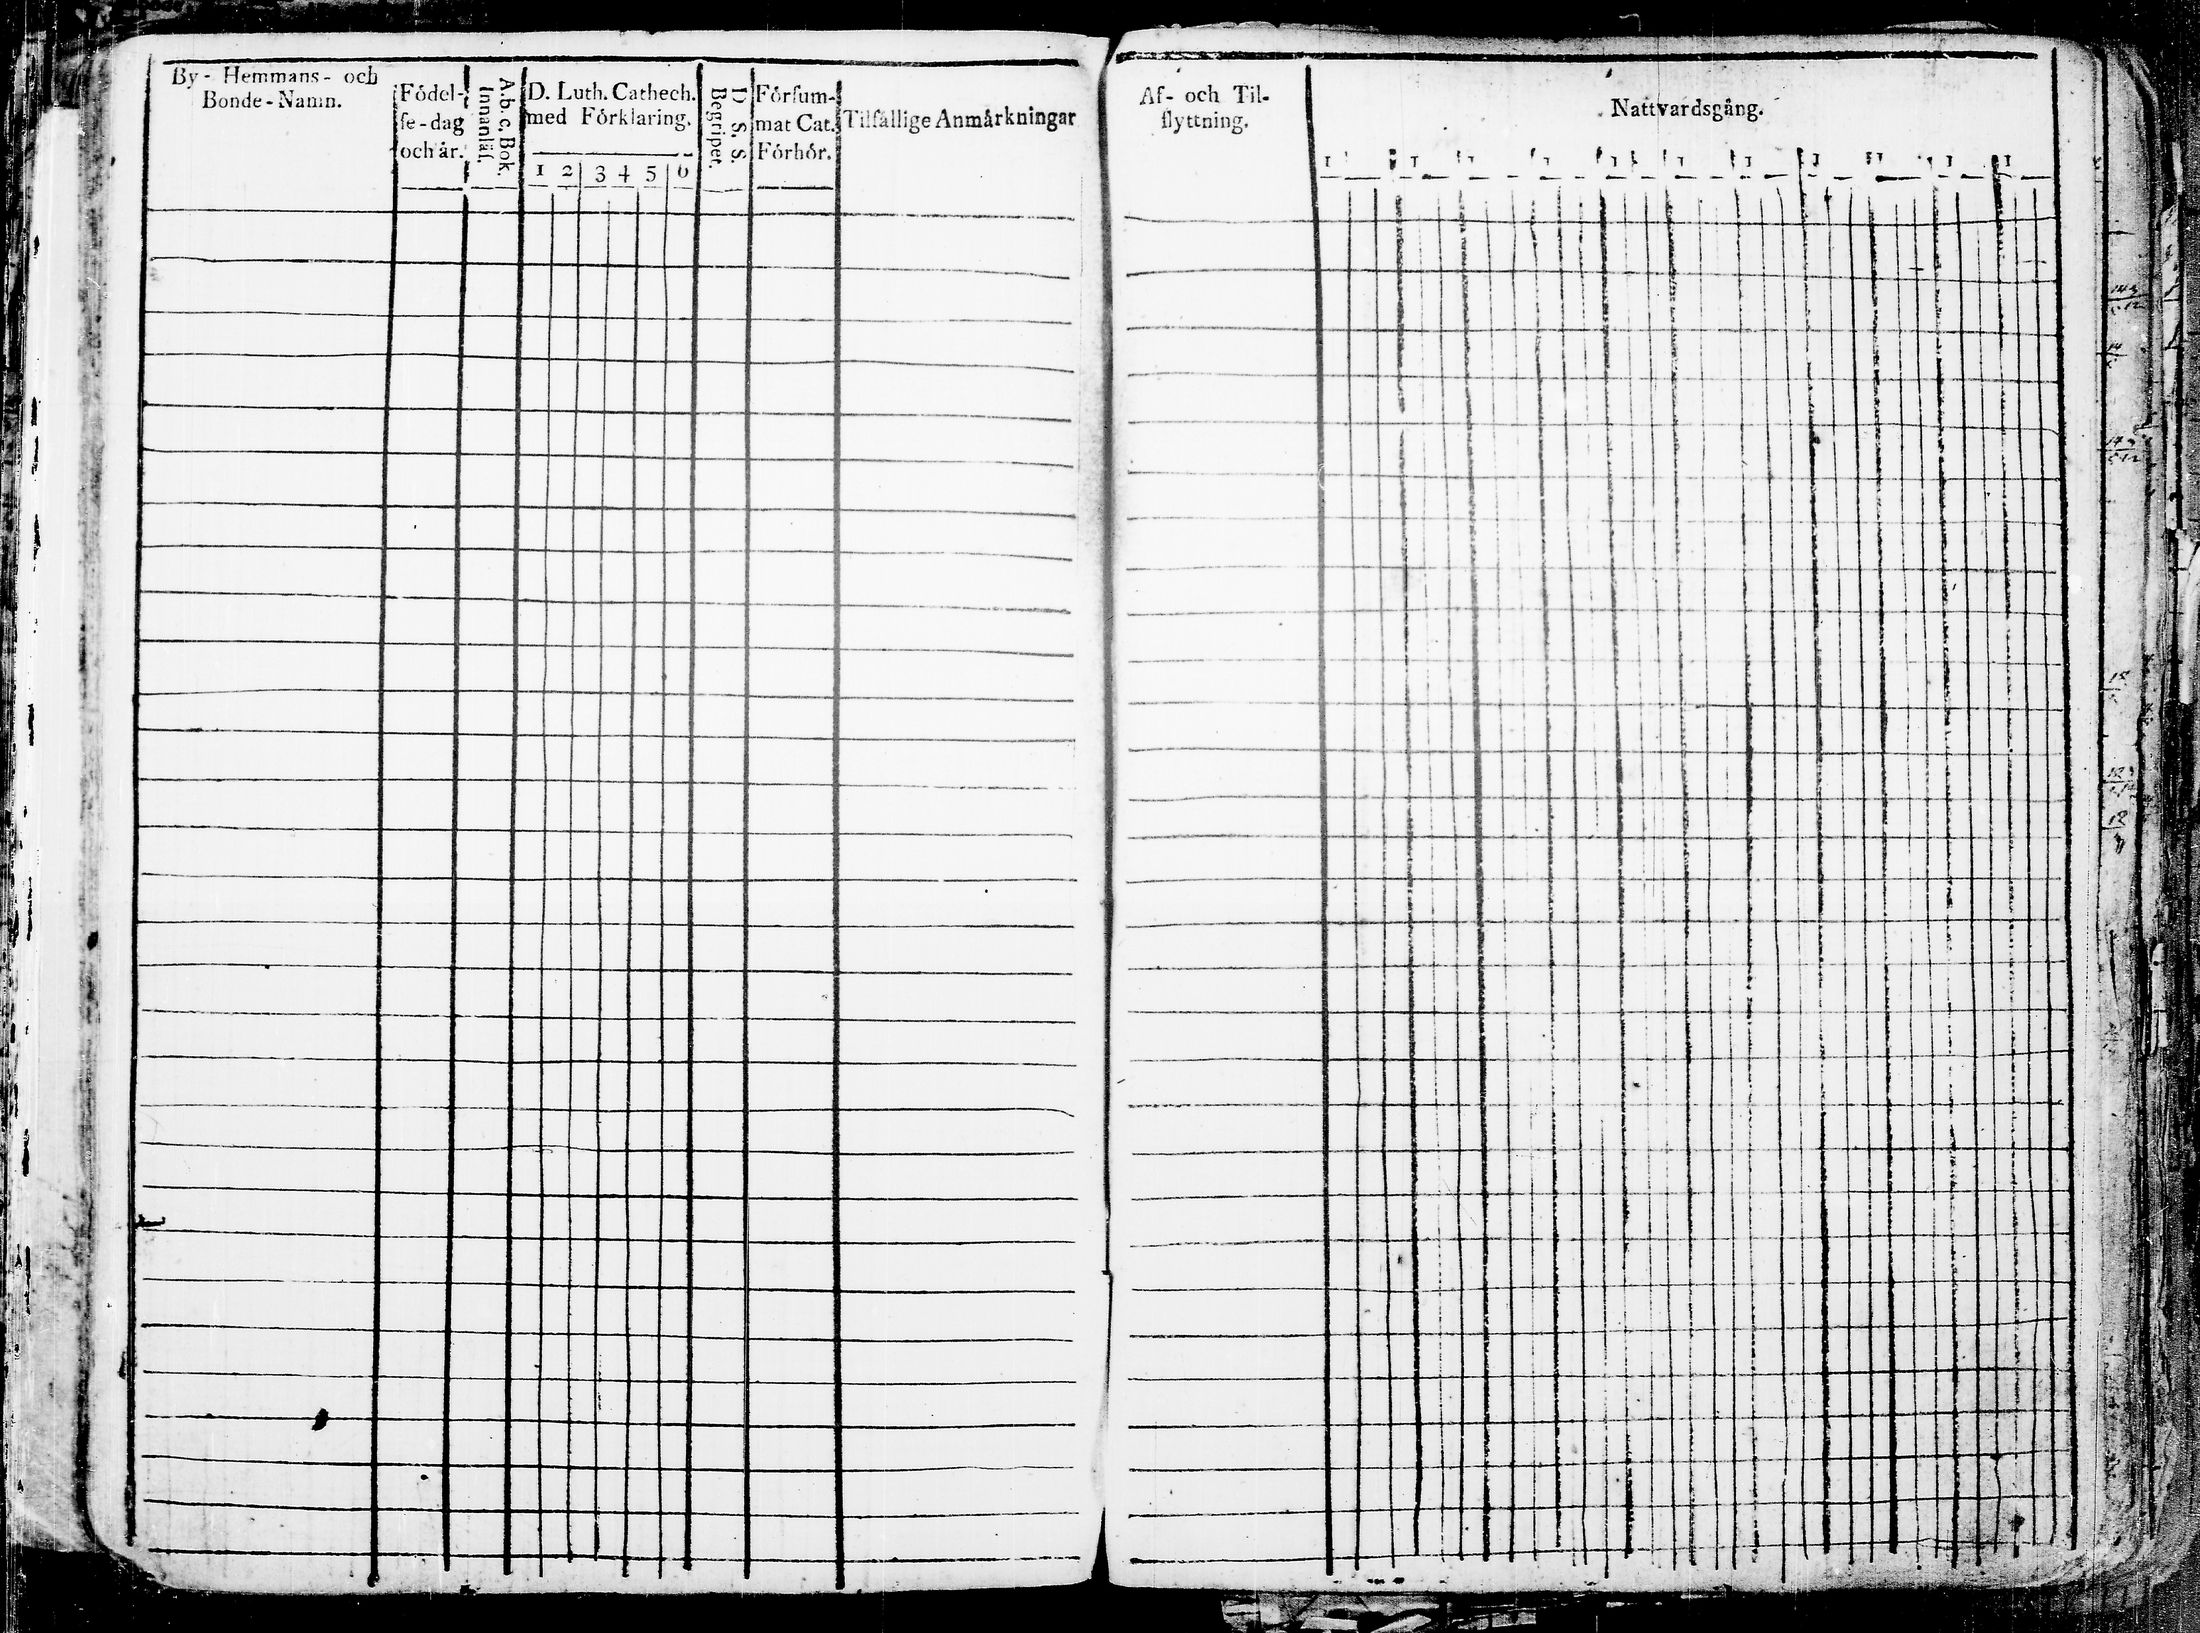 By- Hemmans- och
Bonde-Namn.
Födel-
se-dag
och år.
A.b.c. Bok.
Innanläs.
D. Luth. Cathech.
med Förklaring.
1 2 3 4 5 6
D. S. S.
Begriper.
Försum-
mat Cat.
Förhör.
Tilfällige Anmärkningar
Af- och Til-
flyttning.
Nattvardsgång.
1 1 1 1 1 1 1 1 1 1 1